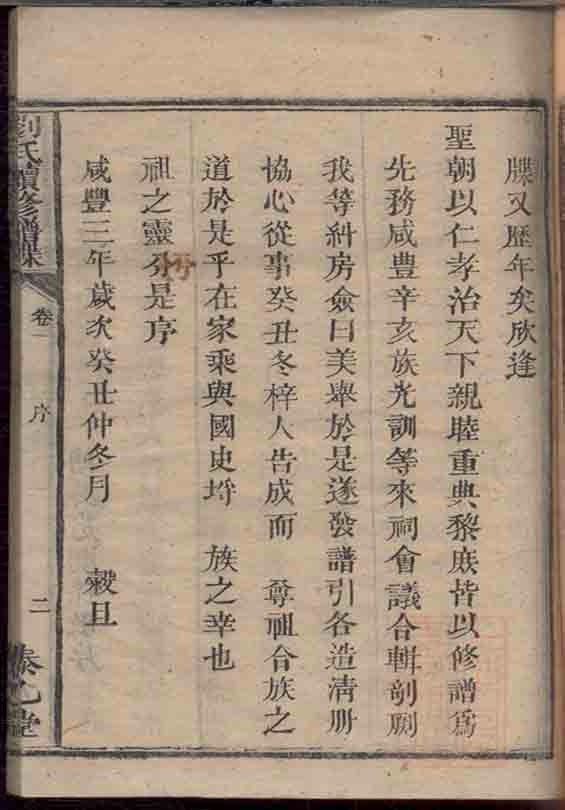 牒又歷年矣欣逢
聖朝以仁孝治天下親睦重典黎庶皆以修譜爲
先務咸豐辛亥族光訓等來祠會議合輯剞劂
我等糾房僉曰美舉於是遂發譜引各造清册
協心從事癸丑冬梓人告成而 尊祖合族之
道於是乎在家乘與國史埒 族之幸也
祖之靈 是序
咸豐三年歲次癸丑仲冬月 穀旦
劉氏續修譜牒
卷一
序
二
泰乙堂